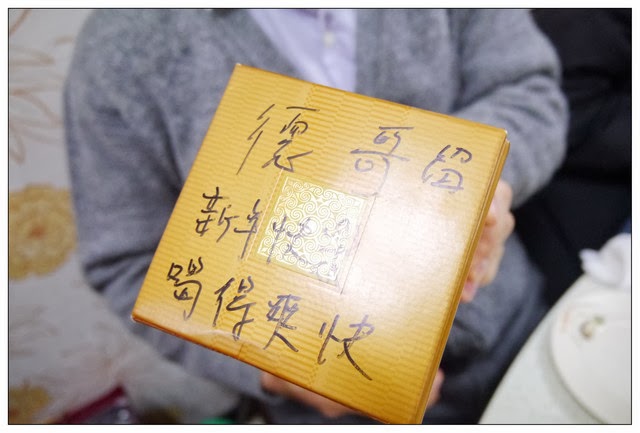 德哥留
新年快樂
喝得爽快